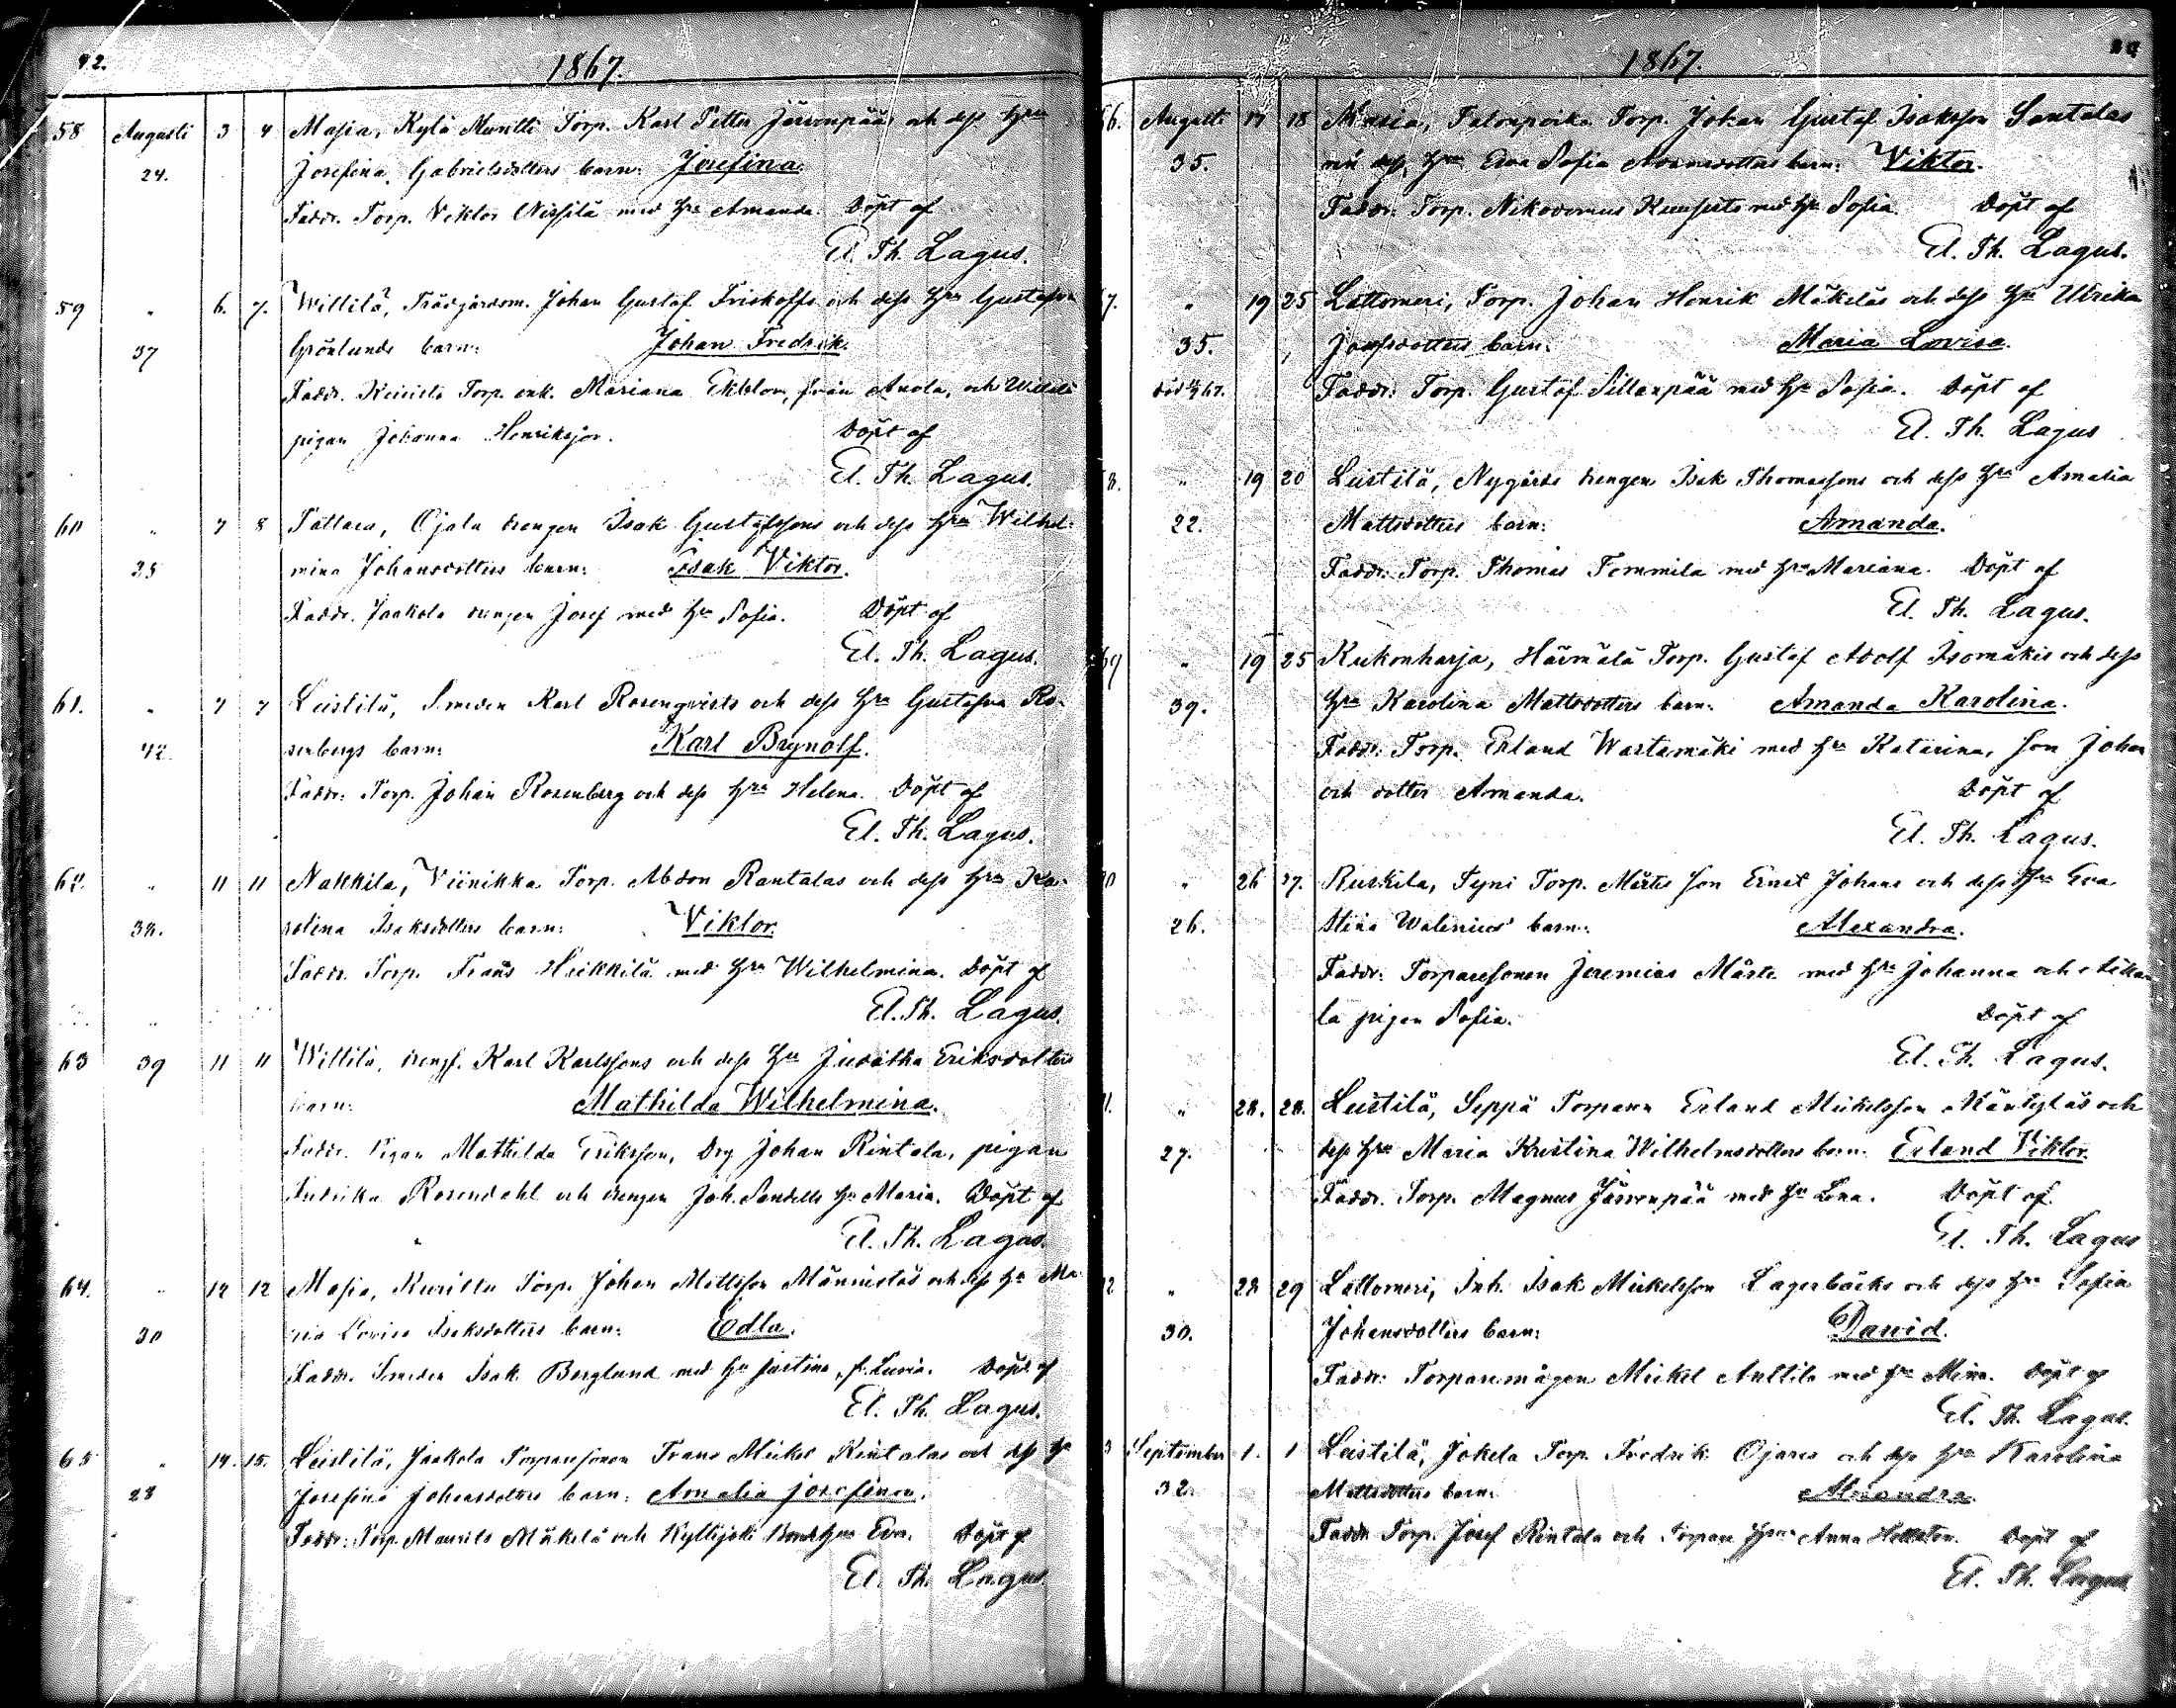 42.
1867.
58 Augusti 3 4 Masia, Kylä Muntti Torp. Karl Petter Järvenpääs och dess Hru
24. Josefina Gabrielsdotters barn: Josefina.
Faddr. Torp. Viktor Nissilä med Hu Amanda. Döpt af
El. Th. Lagus.
59 " 6. 7. Willilä, Trädgårdsm. Johan Gustaf Friskoffs och dess Hru Gustafva
37 Grönlunds barn: Johan Fredrik.
Faddr. Torp. enk. Mariana Ekblom, från Anola, och Willilä
pigan Johanna Henriksson. Döpt af
El. Th. Lagus.
60 " 7 8 Tattara, Ojala drengen Isak Gustafssons och dess Hru Wilhel-
25 mina Johansdotters barn: Isak Viktor.
Faddr. Jaakola drengen Josef med Hu Sofia. Döpt af
El. Th. Lagus.
61. " 7 7 Leistilä, Smeden Karl Rosenqvists och dess Hru Gustafva Ro-
42. senbergs barn: Karl Brynolf.
Faddr: Torp. Johan Rosenberg och dess Hru Helena. Döpt af
El. Th. Lagus.
62. " 11 11 Nakkila, Viinikka Torp. Abdon Rantalas och dess Hru Ka-
rolina Isaksdotters barn: Viktor.
Faddr. Torp. Frans Heikkilä med Hru Wilhelmina. Döpt af
El. Th. Lagus.
63 39 11 11 Willilä, drengs. Karl Karlssons och dess Hu Juditha Eriksdotters
barn: Mathilda Wilhelmina.
Faddr. Pigan Mathilda Eriksson, Drg Johan Rintala, pigan
Fredrika Rosendahl och drengen Joh. Sandells Hu Maria. Döpt af
El. Th. Lagus.
64. " 12 12 Masia, Kurittu Torp. Johan Mattsson Männistös och dess Hu Ma-
30 ria Lovisa Isaksdotters barn: Edla.
Faddr. Smeden Isak Berglund med Hu Justina, fr. Luvia. Döpt af
El. Th. Lagus.
65 " 14. 15. Leistilä, Jaakola Torparesonen Frans Mickel Rintalas och dess Hu
28 Josefina Johansdotters barn: Amalia Josefina.
Faddr: Torp. Maurits Mäkelä och Kyllijoki Bondehru Eva. Döpt af
El. Th. Lagus
1867.
66. Augusti 17 18 Torp. Johan Gustaf Isaksson Santalas
35. med dess Hru Eva Sofia barn: Viktor.
Faddr: Torp. Nikodemus med Hu Sofia. Döpt af
El. Th. Lagus.
7. " 19 25 Lattomeri, Torp. Johan Henrik Mäkeläs och dess Hru Ulrika
35. Josefsdotters barn: Maria Lovisa.
Faddr: Torp. Gustaf Sillanpää med Hu Sofia. Döpt af
El. Th. Lagus
8. " 19 20 Leistilä, Nygårds drengen Isak Thomassons och dess Hru Amalia
22. Mattsdotters barn: Amanda.
Faddr: Torp. Thomas Tommila med Hru Mariana. Döpt af
El. Th. Lagus.
69 " 19 25 Kukonharja, Härmälä Torp. Gustaf Adolf Isomäkis och dess
39. Hru Karolina Mattsdotters barn: Amanda Karolina.
Faddr: Torp. Erland Wartamäki med Hu Katarina, son Johan
och dotter Amanda. Döpt af
El. Th. Lagus.
70 " 26 27. Ruskila, Tyni Torp. Mårtes son Ernst Johans och dess Hru Eva
26. Stina Walenius' barn: Alexandra.
Faddr: Torparesonen Jeremias Mårte med Hru Johanna och
la pigan Sofia. Döpt af
El. Th. Lagus.
1. " 28. 28. Leistilä, Seppä Torparen Erland Mickelsson Mäntyläs och
27. dess Hru Maria Kristina Wilhelmsdotters barn: Erland Viktor.
Faddr. Torp. Magnus Järvenpää med Hu Lena. Döpt af.
El. Th. Lagus
2 " 28 29 Lattomeri, Inh. Isak Mickelsson Lagerbäcks och dess Hru Sofia
30. Johansdotters barn: David.
Faddr: Torparemågen Mickel Anttila med Hru Mina. Döpt af
El. Th. Lagus.
3 September 1. 1 Leistilä, Jokela Torp. Fredrik Ojares och dess Hru Karolina
32. Mattsdotters barn: Alexandra.
Faddr Torp. Josef Rintala och Torpare Hru Anna Hellsten. Döpt af
El. Th. Lagus